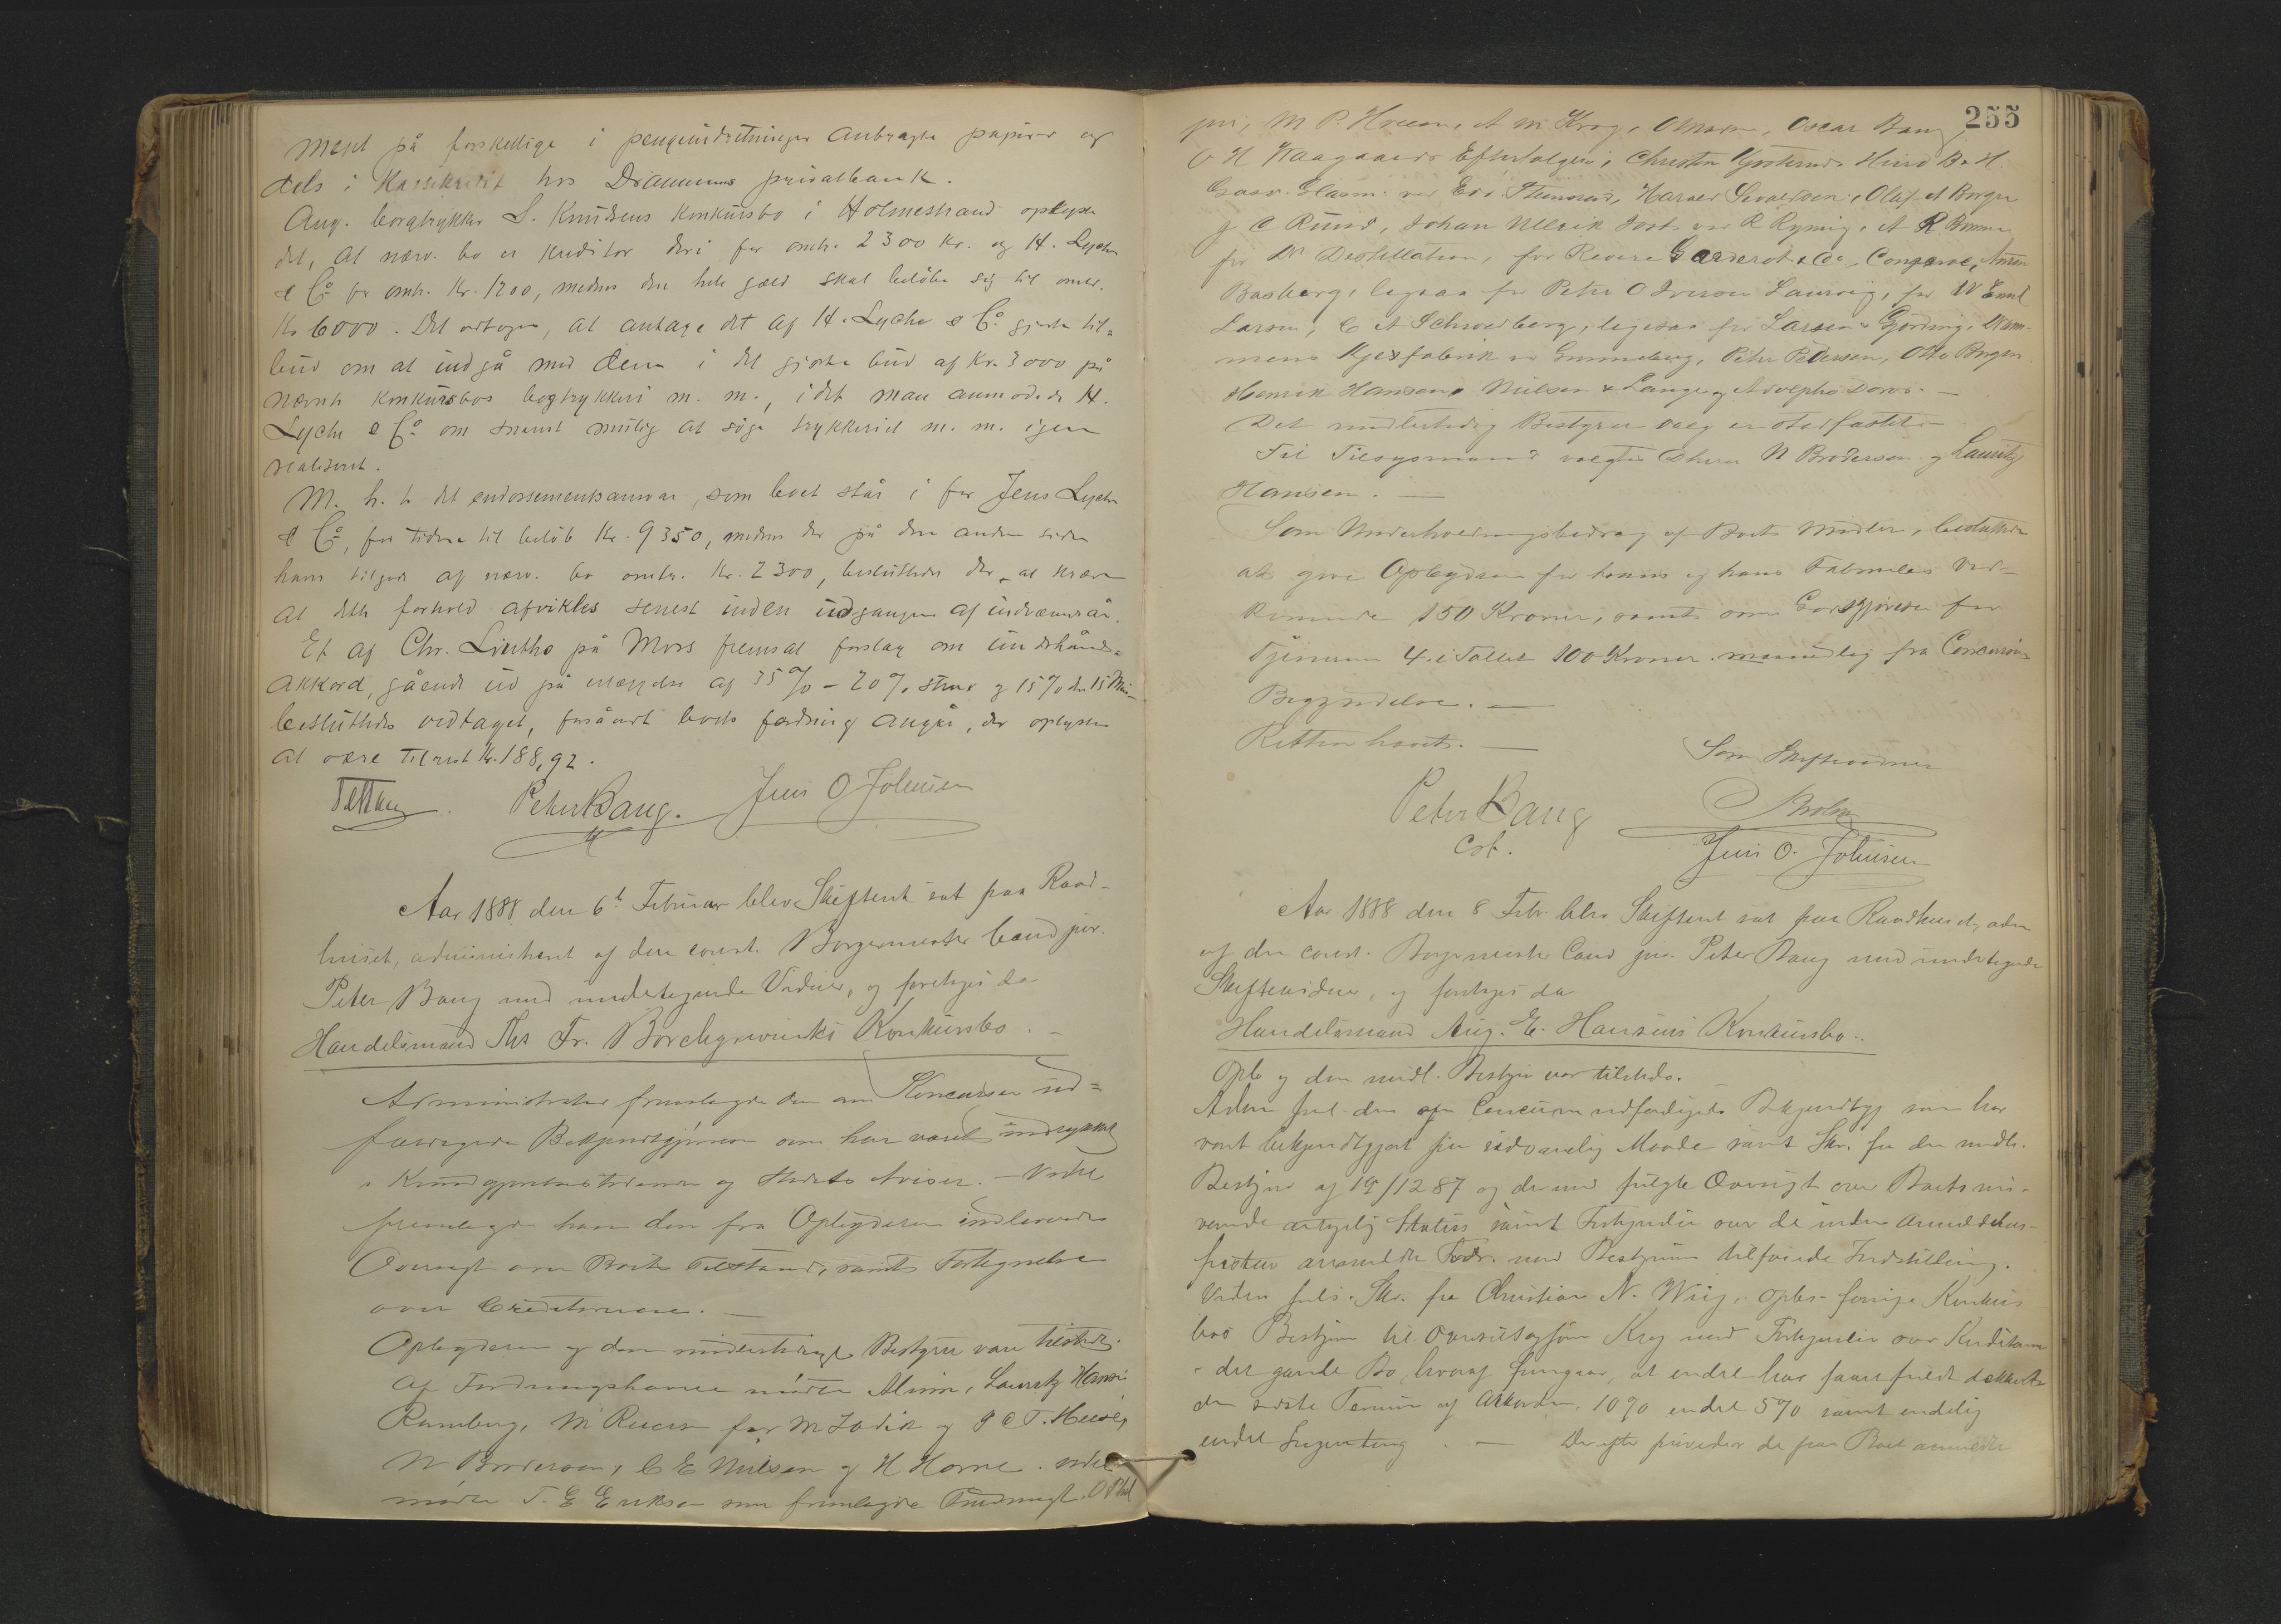 ment på forskellige i pengeindretninger anbragte papirer og
dels i Kassekredit hos Drammens privatbank.
Ang. bogtrykker S. Knudsens konkursbo i Holmestrand oplyste
det, at nærv. bo er kreditor deri for omtr. 2300 kr. og H. Lyche
& Co for omtr. kr. 1200, medens den hele gæld skal beløbe sig til omtr.
kr 6000. Det vedtoges, at antage det af H. Lyche & Co gjorte til-
bud om at indgå med dem i det gjorte bud af kr. 3000 på
nævnte konkursbos bogtrykkeri m. m., idet man anmodede H.
Lyche & Co om snarest mulig at søge trykkeriet m. m. igen
realiseret.
M. h. t. det endossementsansvar, som boet står i for Jens Lyche
& Co, for tiden til beløb kr. 9350, medens der på den anden side
hans tilgode af nærv. bo omtr. kr. 2300, besluttedes der at kræve
at dette forhold afvikles senest inden udgangen af indeværende år.
Et af Chr. Lintho på Moss fremsat forslag om underhånds-
akkord, gående ud på erlæggelse af 35% – 20% strax og 15% den 15 Mai
besluttedes vedtaget, forsåvidt boets fordring angår, der oplystes
at være tilrest kr. 188,92.
Peter Bang. Jens O Johnsen
Aar 1888 den 6te Februar blev Skifteret sat paa Raad-
huset, administreret af den const. Borgermester Cand jur.
Peter Bang med undertegnede Vidner, og foretoges da
Handelsmand Ths Fr. Borchgrevinks Konkursbo. –
Administrator fremlagde den om Koncursen ud-
færdigede Bekjendtgjørelse som har været indrykket
i Kundgjørelsestidende og Stedets Aviser. – Videre
fremlagde han den fra Opbyderen indleverede
Oversigt over Boets Tilstand, samt Fortegnelse
over Creditorerne. –
Opbyderen og den midlertidige Bestyrer vare tilstede.
Af Fordringshavere mødte Alm, Lauritz Hansen
Ramberg, M Riiers for M Jodik og P C T.
N Brodersen, C E Nielsen og H Horne. Videre
mødte T. E Eriksen som fremlagde Fuldmagt
255
jun, M P. A M Krog, Oscar Bang
O H Kaagaards Efterfølger, Christen B. H.
ved Edv. Harald Olaf A Borger
g C Rund, Johan Ulrik ved R Ryning, A R
for Dr Destillation, for Revere Garderob & Co,
Basberg, ligesaa for Peter O Iverson Laurvig, for W Emil
Larsen, C A Schwedberg, ligesaa for Larsen & Gjørding,
mens Kjexfabrik ved Gunneberg, Peter Pedersen, Otto Borgen
Henrik Hansen, Nielsen & Lange og Adolphs
Det midlertidig Bestyrer valg er stadfæstet. –
Til Tilsynsmænd valgtes Dherr N Brodersen og Lauritz
Hansen. –
Som Underholdningsbidrag af Boets Midler, besluttedes
at give Opbyderen for hans og hans Families Ved-
kommende 150 Kroner, samt som Godtgjørelse for
Tjenerne 4 i Tallet 100 Kroner maanedlig fra Concursens
Begyndelse. –
Retten hævet. –
Som Skiftevidner
Peter Bang
cst.
Jens O. Johnsen
Aar 1888 den 8 Febr. blev Skifteret sat paa Raadhuset, adm
af den const. Borgermester Cand jur. Peter Bang med undertegnede
Skiftevidner, og foretoges da
Handelsmand Aug. E. Hansens Konkursbo.
Opb og den midl. Bestyrer var tilstede.
Adm frel. den om Concursen udfærdigede Bekjendtgj som har
vært bekjendtgjort paa sædvanlig Maade samt Skr. fra den midl.
Bestyrer af 19/12 87 og dermed fulgte Oversigt over Boets nu-
værende antagelig Status samt Fortegnelse over de inden Anmeldelses-
fristen anmeldte Fodr. med Bestyrerens tilføiede Indstilling.
Viden frels. Skr. fra Christian N. Wiig, opbs. forrige Konkurs
bos Bestyrer til Overretssagfører Krog med Fortegnelse over Kreditorerne
i det gamle Bo, hvoraf fremgaar, at endel har faaet fuldt dækket
den sidste Termin af Akkorden, 10% endel 5% samt endelig
endel Ingenting. – Derefter prøvedes de paa Boet anmeldte